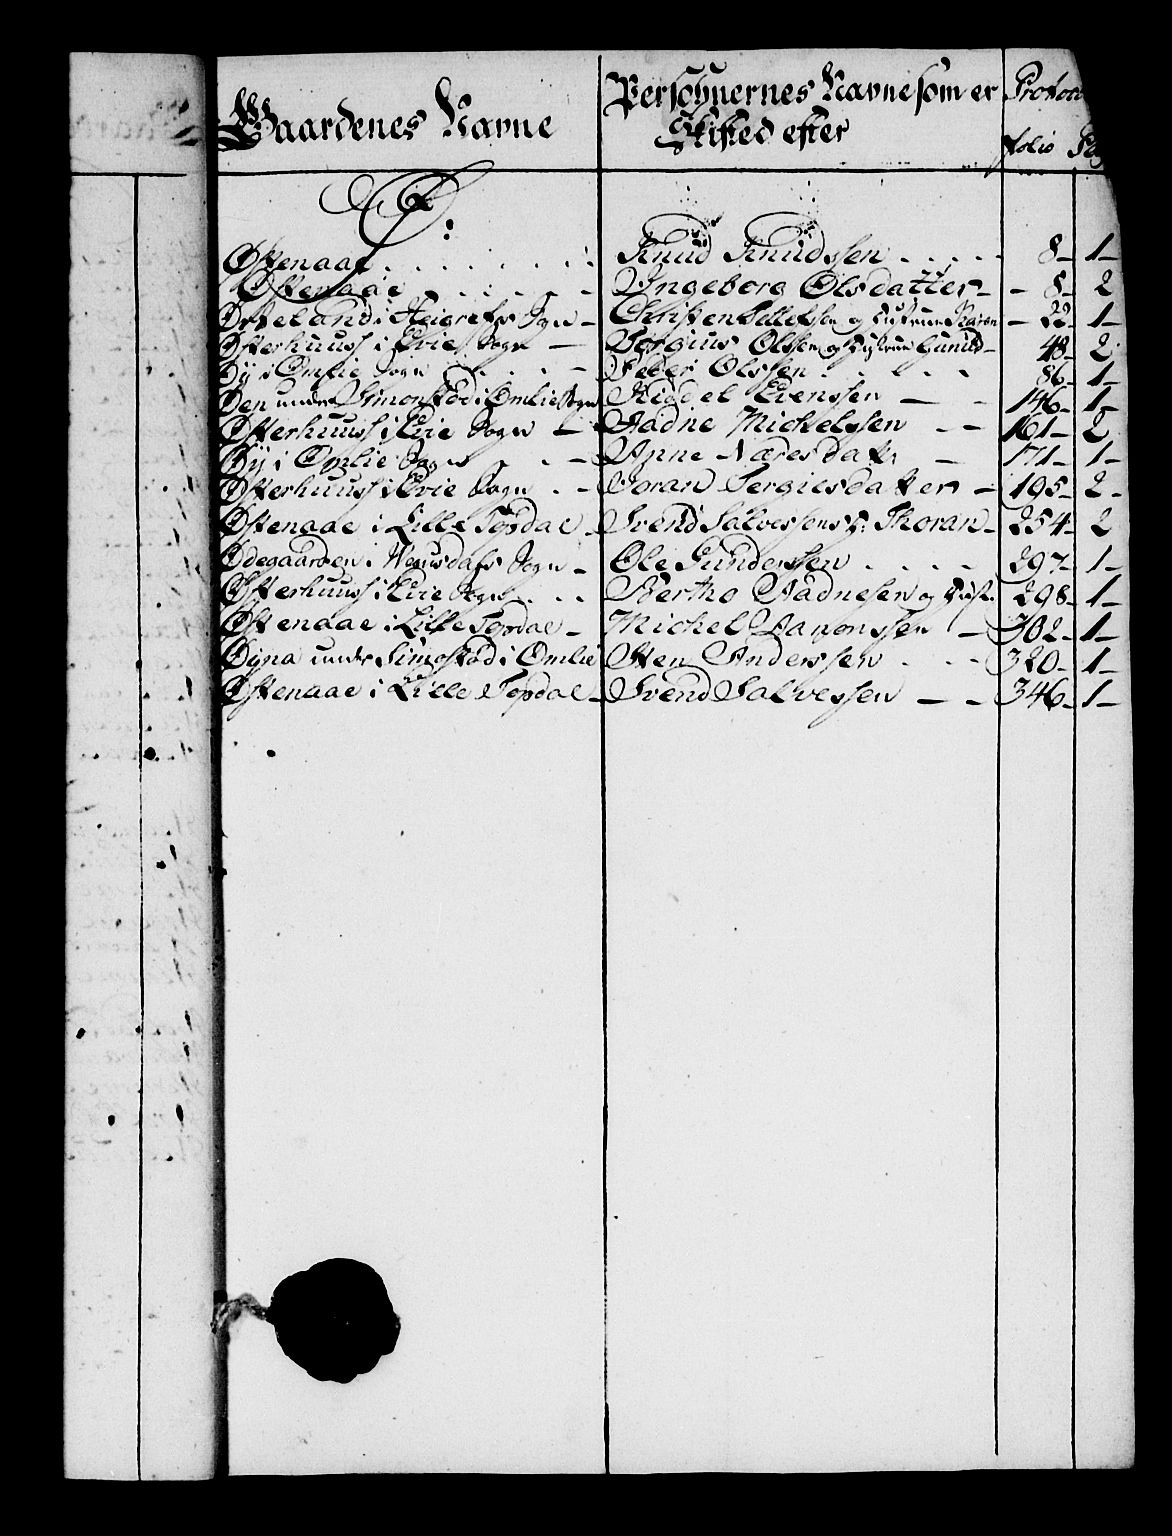 Gaardenes Navne Persohnernes Navne som er Skifted efter Protoco folio Pag
Ø:
Østenaae Knud Knudssen 8 1
Østenaae Ingeborg Olsdatter 8 2
i Heigrefos Sogn Christen og Hustrue Karen 22 1
Østerhuus i Evie Sogn Sergius Olssen og Hustrue Gunild 48 2
Øy i Omlie Sogn Peder Olssen 86 1
Øen under Simonstad i Omlie Sogn Kiddel Evenssen 146 1
Østerhuus i Evie Sogn Aadne Michelssen 161 2
Øy i Omlie Sogn Anne Næresdatr 171 1
Østerhuus i Evie Sogn Joran Sergiusdatter 195 2
Østenaae i Lille Topdal Svend Salvessens H: Thoran 254 2
Ødegaarden i Wegusdals Sogn Ole Gunderssen 297 1
Østerhuus i Evie Sogn Bertho Aadnesen og Hust. 298 1
Østenaae i Lille Topdal Michel Aanonssen 302 1
Øyna under Simostad i Omlie Sten Anderssen 320 1
Østenaae i Lille Topdal Svend Salvessen 346 1